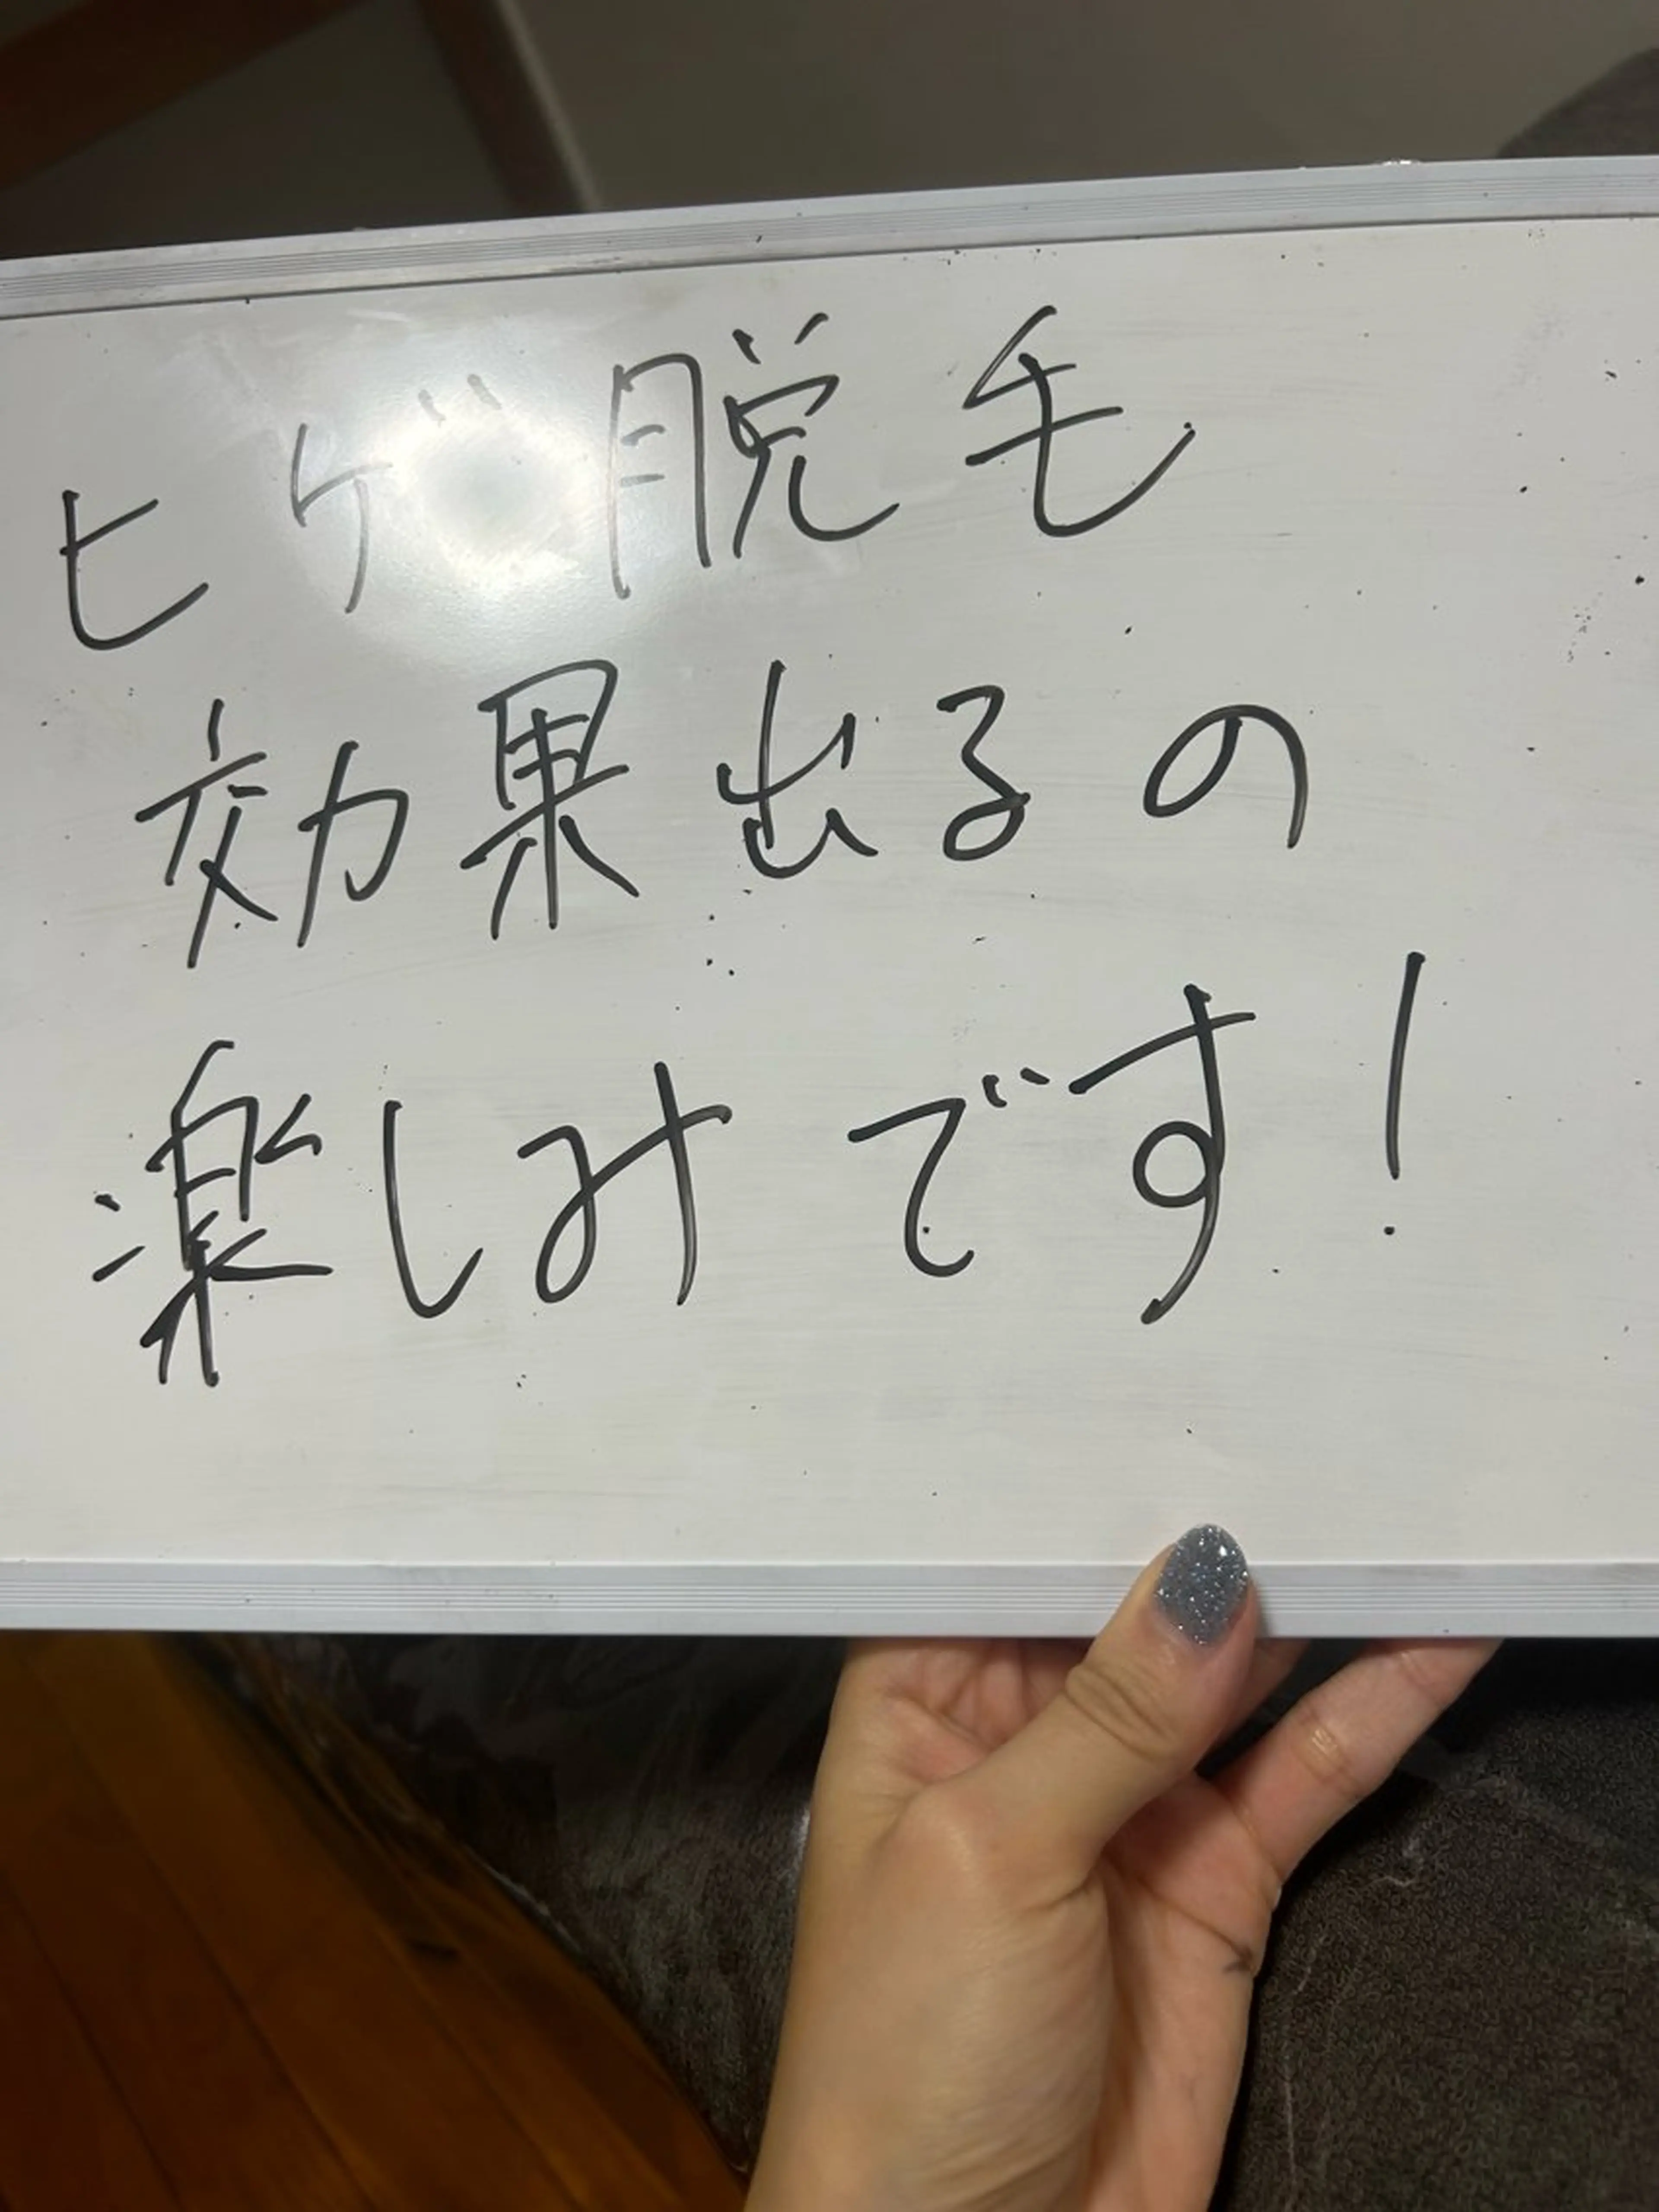 ヒゲ脱毛
効果出るの
楽しみです!